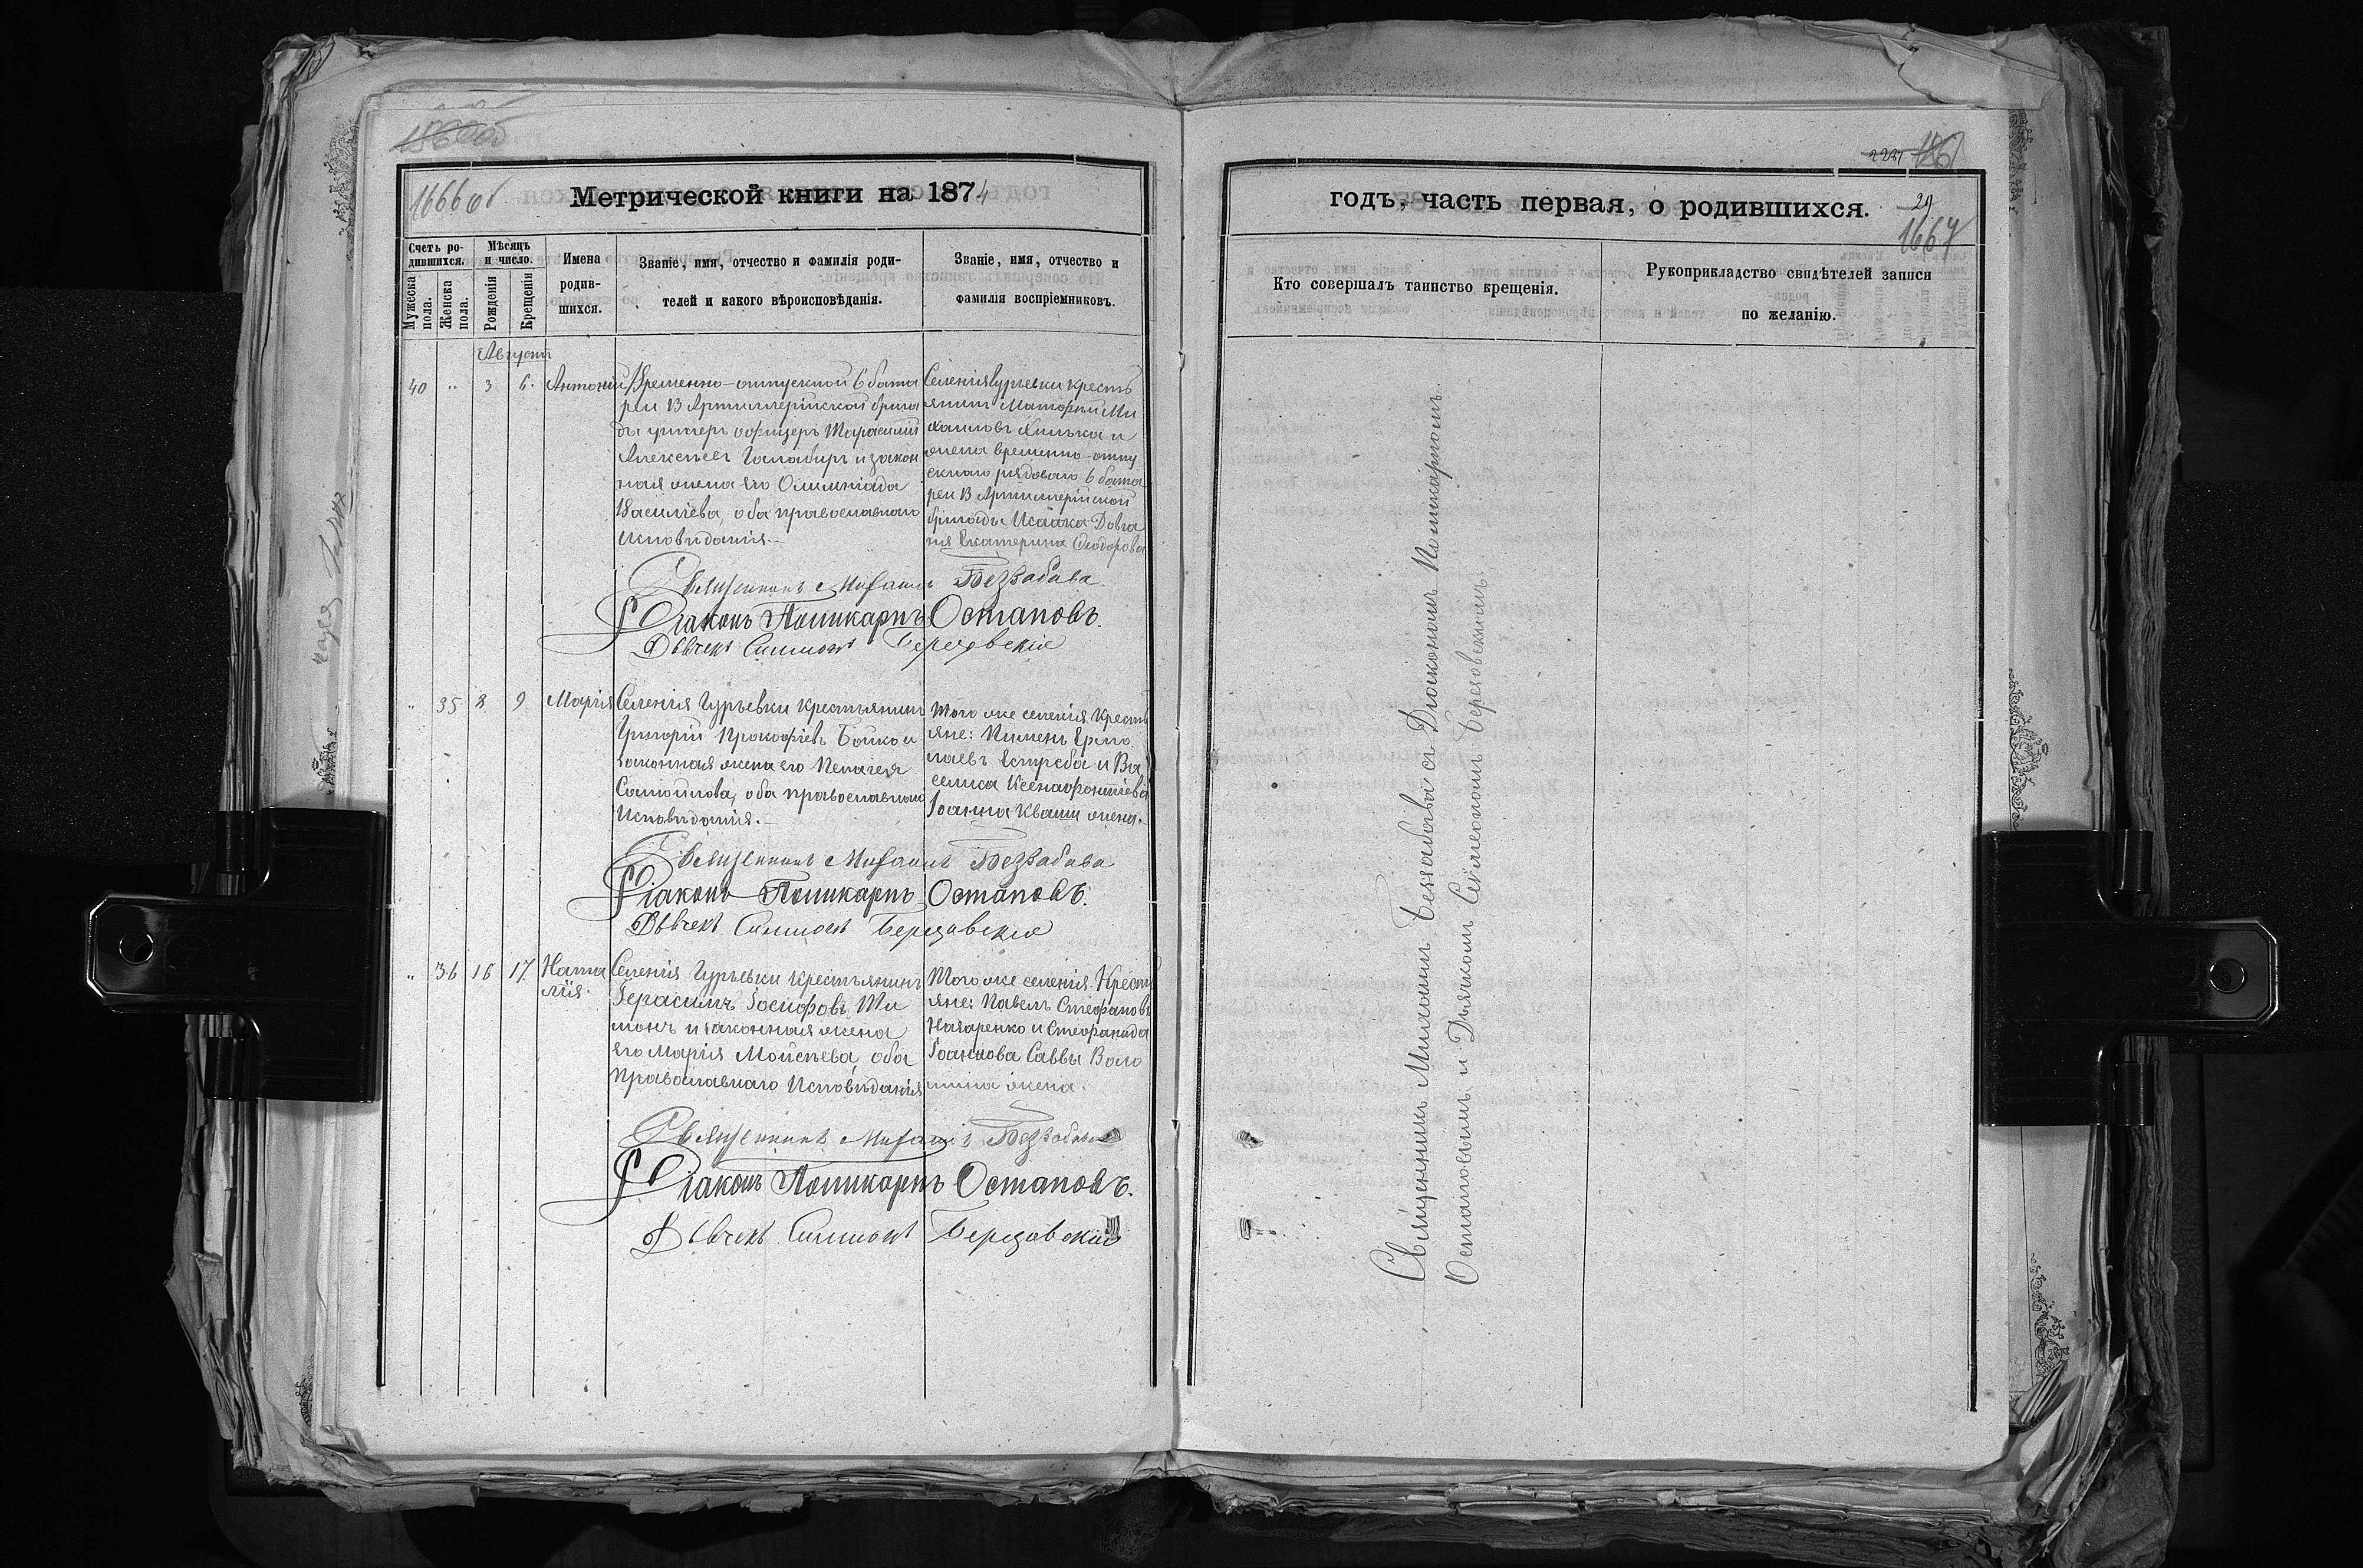 1666об
Метрической книги на 1874
Счетъ ро-
дившихся.
Мѣсяцъ
и число.
Мужеска
пола.
Женска
пола.
Рожденія
Крещенія
Имена
родив-
шихся.
Званіе, имя, отчество и фамилія роди-
телей и какого вѣроисповѣданія.
Званіе, имя, отчество и
фамилія воспріемниковъ.
Августъ
40 " 3 6. Антоній
Временно-отпускной 6 бата
реи 13 Артиллерійской брига
ды унтеръ офицеръ Тарасій
Алексѣевъ и закон
ная жена его Олимпіада
Василіева, оба православнаго
исповѣданія.
Селенія Гурьевки кресть
янинъ Ми
хаиловъ и
жена временно-отпу
скнаго рядоваго 6 бата
реи 13 Артиллерійской
бригады Исаака Довга
ня Екатерина Ѳеодорова
Священникъ Михаилъ Беззабава
Діаконъ Поликарпъ Остаповъ.
Дьячекъ Березовскій
" 35 8 9 Марія
Селенія Гурьевки крестьянинъ
Григорій Прокофіевъ Бойко и
законная жена его Пелагея
Самойлова, оба православнаго
исповѣданія.
Того же селенія кресть
яне: Пименъ Ермо
лаевъ и Ва
селиса Ксенофонтіева
Іоанна Кваши жена.
Священникъ Михаилъ Беззабава
Діаконъ Поликарпъ Остаповъ.
Дьячекъ Березовскій
" 36 16 17 Ната
лія
Селенія Гурьевки крестьянинъ
Герасимъ Іосифовъ Ти
монъ и законная жена
его Марія Мойсѣева, оба
Православнаго Исповѣданія
Того же селенія Кресть
яне: Павелъ Стефановъ
Назаренко и Стефанида
Іоаннова Саввы Воло
шина жена.
Священникъ Михаилъ Беззабава
Діаконъ Поликарпъ Остаповъ.
Дьячекъ Березовскій
годъ, часть первая, о родившихся.
29
1667
Кто совершалъ таинство крещенія.
Рукоприкладство свидѣтелей записи
по желанію.
Священникъ Михаилъ Беззабава съ Діакономъ Поликарпомъ
Остаповымъ и Дьячкомъ Березовскимъ.